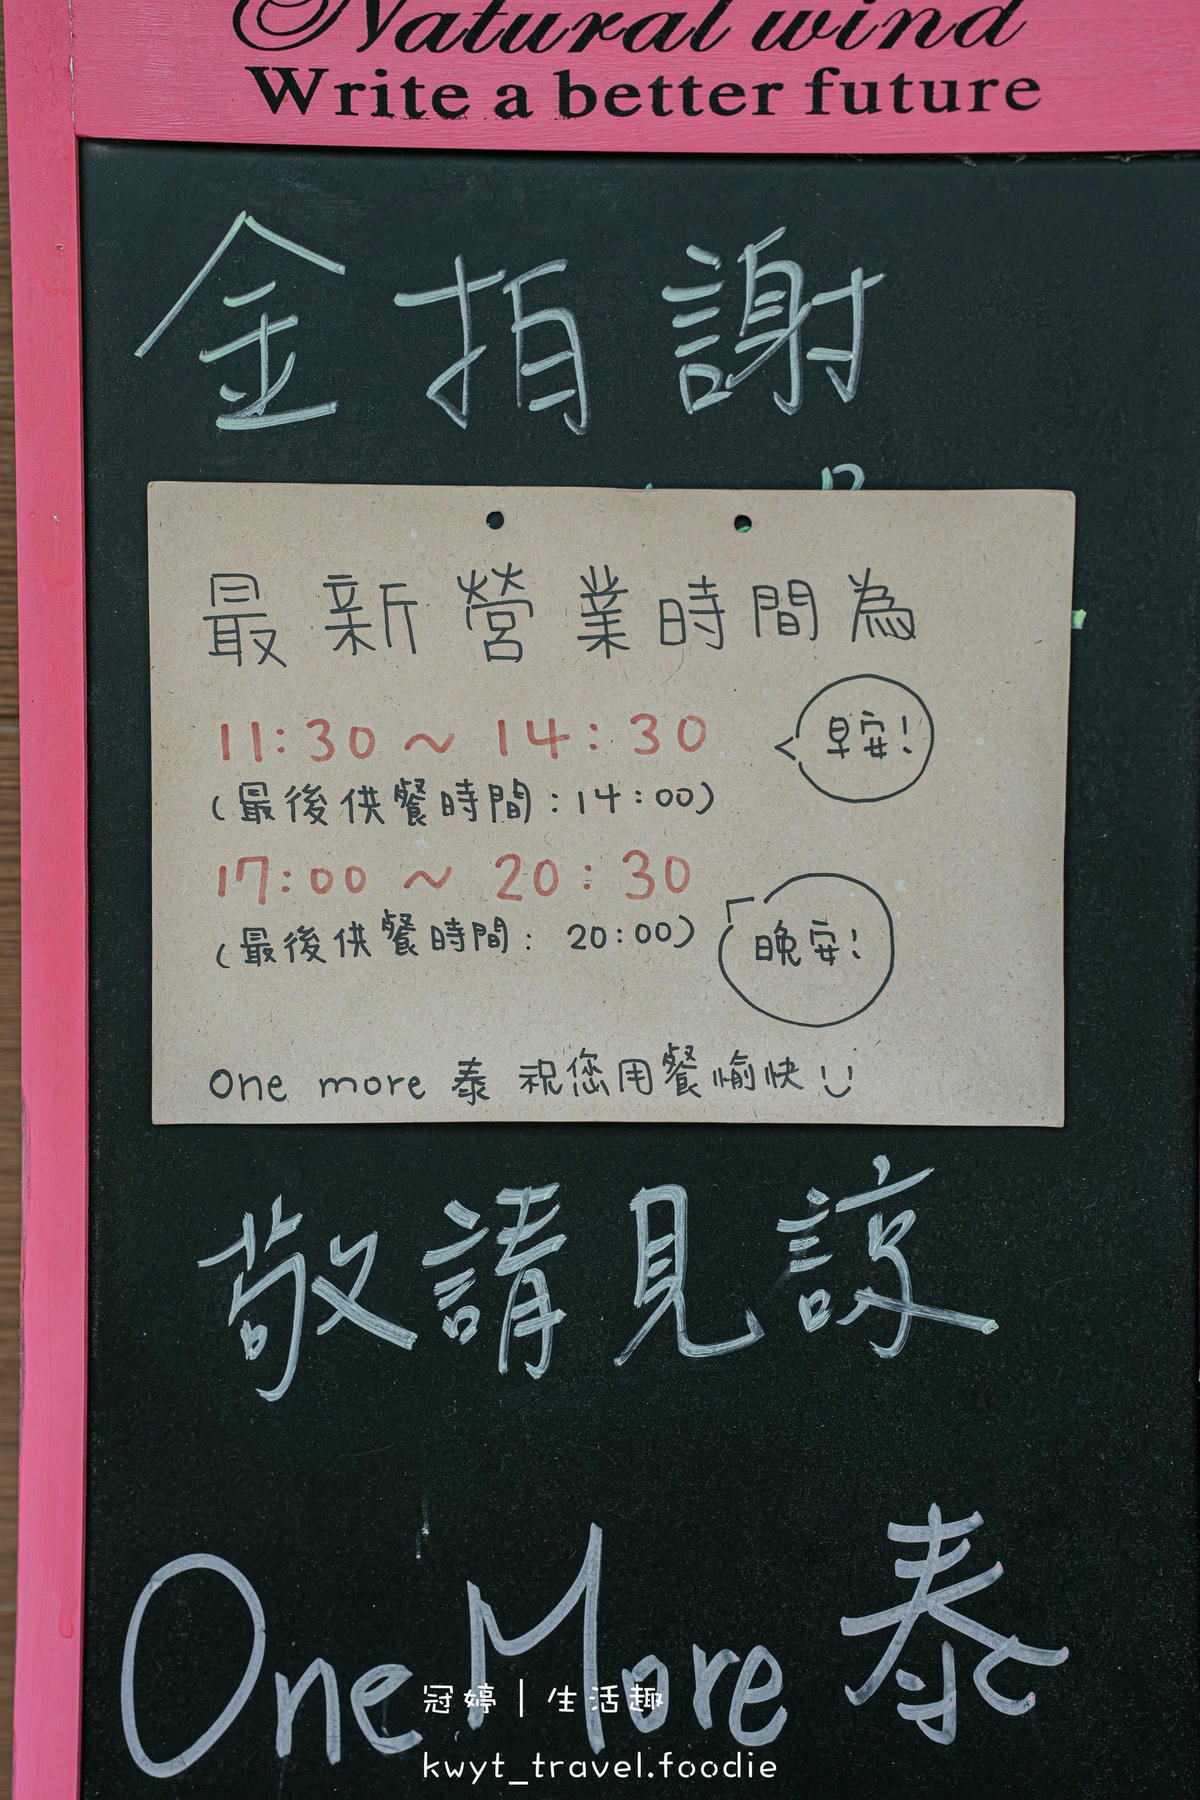 Natural wind
Write a better future
金拍謝
最新營業時間為
11:30 ~ 14:30
早安!
(最後供餐時間:14:00)
17:00 ~ 20:30
(最後供餐時間: 20:00)
晚安!
one more 泰 祝您用餐愉快
敬請見諒
One More 泰
冠婷 | 生活趣
kwyt_travel.foodie